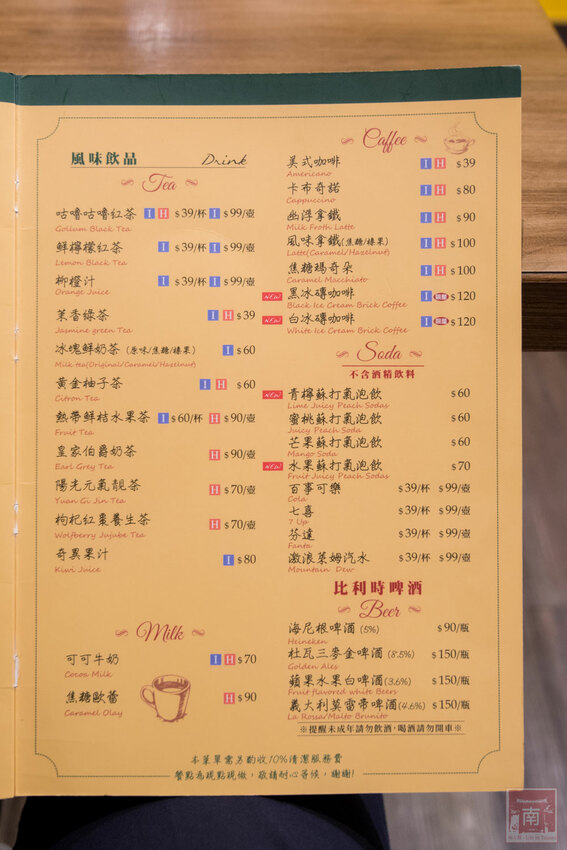 風味飲品 Drink
Tea
咕嚕咕嚕紅茶 I H $39/杯 I $99/壺
Gollum Black Tea
鮮檸檬紅茶 I $39/杯 I $99/壺
Lemon Black Tea
柳橙汁 I $39/杯 I $99/壺
Orange Juice
茉香綠茶 I H $39
Jasmine green Tea
冰塊鮮奶茶 (原味/焦糖/榛果) I $60
Milk tea(Original/Caramel/Hazelnut)
黃金柚子茶 I H $60
Citron Tea
熱帶鮮桔水果茶 I $60/杯 H $90/壺
Fruit Tea
皇家伯爵奶茶 H $90/壺
Earl Grey Tea
陽光元氣靚茶 H $70/壺
Yuan Gi Jin Tea
枸杞紅棗養生茶 H $70/壺
Wolfberry Jujube Tea
奇異果汁 I $80
Kiwi Juice
Milk
可可牛奶 I H $70
Cocoa Milk
焦糖歐蕾 H $90
Caramel Olay
Caffee
美式咖啡 I H $39
Americano
卡布奇諾 I H $80
Cappuccino
幽浮拿鐵 I H $90
Milk Froth Latte
風味拿鐵(焦糖/榛果) I H $100
Latte(Caramel/Hazelnut)
焦糖瑪奇朵 I H $100
Caramel Macchiato
NEW 黑冰磚咖啡 I $120
Black Ice Cream Brick Coffee
NEW 白冰磚咖啡 I $120
White Ice Cream Brick Coffee
Soda
不含酒精飲料
NEW 青檸蘇打氣泡飲 $60
Lime Juicy Peach Sodas
蜜桃蘇打氣泡飲 $60
Juicy Peach Soda
芒果蘇打氣泡飲 $60
Mango Soda
NEW 水果蘇打氣泡飲 $70
Fruit Juicy Peach Sodas
百事可樂 $39/杯 $99/壺
Cola
七喜 $39/杯 $99/壺
7 Up
芬達 $39/杯 $99/壺
Fanta
激浪萊姆汽水 $39/杯 $99/壺
Mountain Dew
比利時啤酒
Beer
海尼根啤酒 (5%) $90/瓶
Heineken
杜瓦三麥金啤酒 (8.5%) $150/瓶
Golden Ales
蘋果水果白啤酒 (3.6%) $150/瓶
Fruit flavored white Beers
義大利莫雷蒂啤酒 (4.6%) $150/瓶
La Rossa/Malto Brunito
※提醒未成年請勿飲酒,喝酒請勿開車※
本菜單需另酌收10%清潔服務費
餐點為現點現做,敬請耐心等候,謝謝!
南